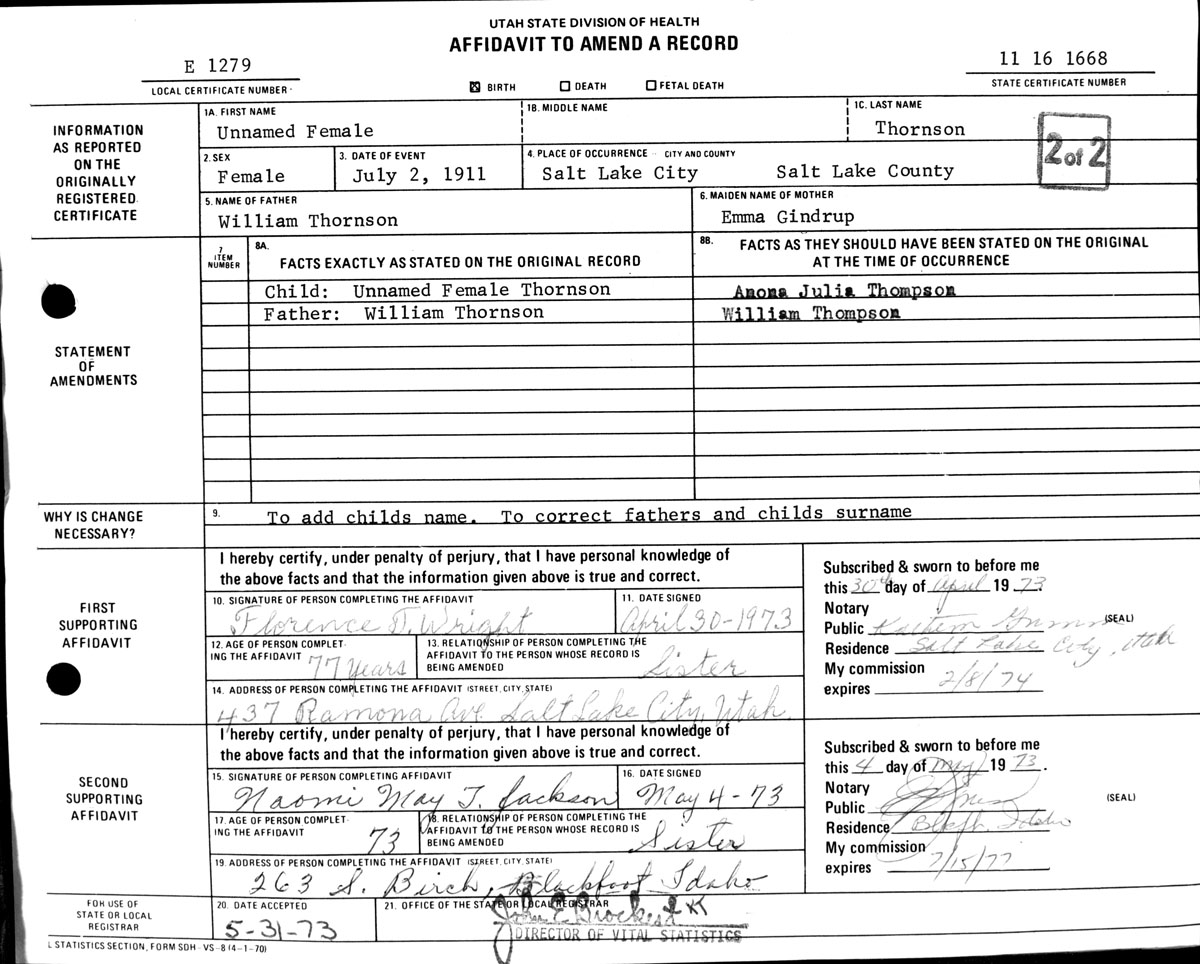 UTAH STATE DIVISION OF HEALTH
AFFIDAVIT TO AMEND A RECORD
E 1279
LOCAL CERTIFICATE NUMBER
☒ BIRTH ☐ DEATH ☐ FETAL DEATH
11 16 1668
STATE CERTIFICATE NUMBER
INFORMATION AS REPORTED ON THE ORIGINALLY REGISTERED CERTIFICATE
1A. FIRST NAME 1B. MIDDLE NAME 1C. LAST NAME
Unnamed Female Thornson
2 of 2
2. SEX 3. DATE OF EVENT 4. PLACE OF OCCURRENCE - CITY AND COUNTY
Female July 2, 1911 Salt Lake City Salt Lake County
5. NAME OF FATHER 6. MAIDEN NAME OF MOTHER
William Thornson Emma Gindrup
STATEMENT OF AMENDMENTS
7 ITEM NUMBER
8A. FACTS EXACTLY AS STATED ON THE ORIGINAL RECORD
8B. FACTS AS THEY SHOULD HAVE BEEN STATED ON THE ORIGINAL AT THE TIME OF OCCURRENCE
Child: Unnamed Female Thornson Anona Julia Thompson
Father: William Thornson William Thompson
WHY IS CHANGE NECESSARY?
9. To add childs name. To correct fathers and childs surname
FIRST SUPPORTING AFFIDAVIT
I hereby certify, under penalty of perjury, that I have personal knowledge of
the above facts and that the information given above is true and correct.
10. SIGNATURE OF PERSON COMPLETING THE AFFIDAVIT 11. DATE SIGNED
Florence T. Wright April 30-1973
12. AGE OF PERSON COMPLETING THE AFFIDAVIT 77 years
13. RELATIONSHIP OF PERSON COMPLETING THE AFFIDAVIT TO THE PERSON WHOSE RECORD IS BEING AMENDED Sister
14. ADDRESS OF PERSON COMPLETING THE AFFIDAVIT (STREET, CITY, STATE)
437 Ramona Ave. Salt Lake City, Utah.
Subscribed & sworn to before me
this 30th day of April 1973.
Notary
Public (SEAL)
Residence Salt Lake City, Utah
My commission
expires 2/8/74
SECOND SUPPORTING AFFIDAVIT
I hereby certify, under penalty of perjury, that I have personal knowledge of
the above facts and that the information given above is true and correct.
15. SIGNATURE OF PERSON COMPLETING AFFIDAVIT 16. DATE SIGNED
Naomi May T. Jackson May 4-73
17. AGE OF PERSON COMPLETING THE AFFIDAVIT 73
18. RELATIONSHIP OF PERSON COMPLETING THE AFFIDAVIT TO THE PERSON WHOSE RECORD IS BEING AMENDED Sister
19. ADDRESS OF PERSON COMPLETING THE AFFIDAVIT (STREET, CITY, STATE)
263 S. Birch, Blackfoot Idaho
Subscribed & sworn to before me
this 4 day of May 1973.
Notary
Public (SEAL)
Residence Idaho
My commission
expires 7/15/77
FOR USE OF STATE OR LOCAL REGISTRAR
20. DATE ACCEPTED 21. OFFICE OF THE STATE OR LOCAL REGISTRAR
5-31-73 John E. Brockert
DIRECTOR OF VITAL STATISTICS
L STATISTICS SECTION, FORM SDH - VS - 8 (4-1-70)